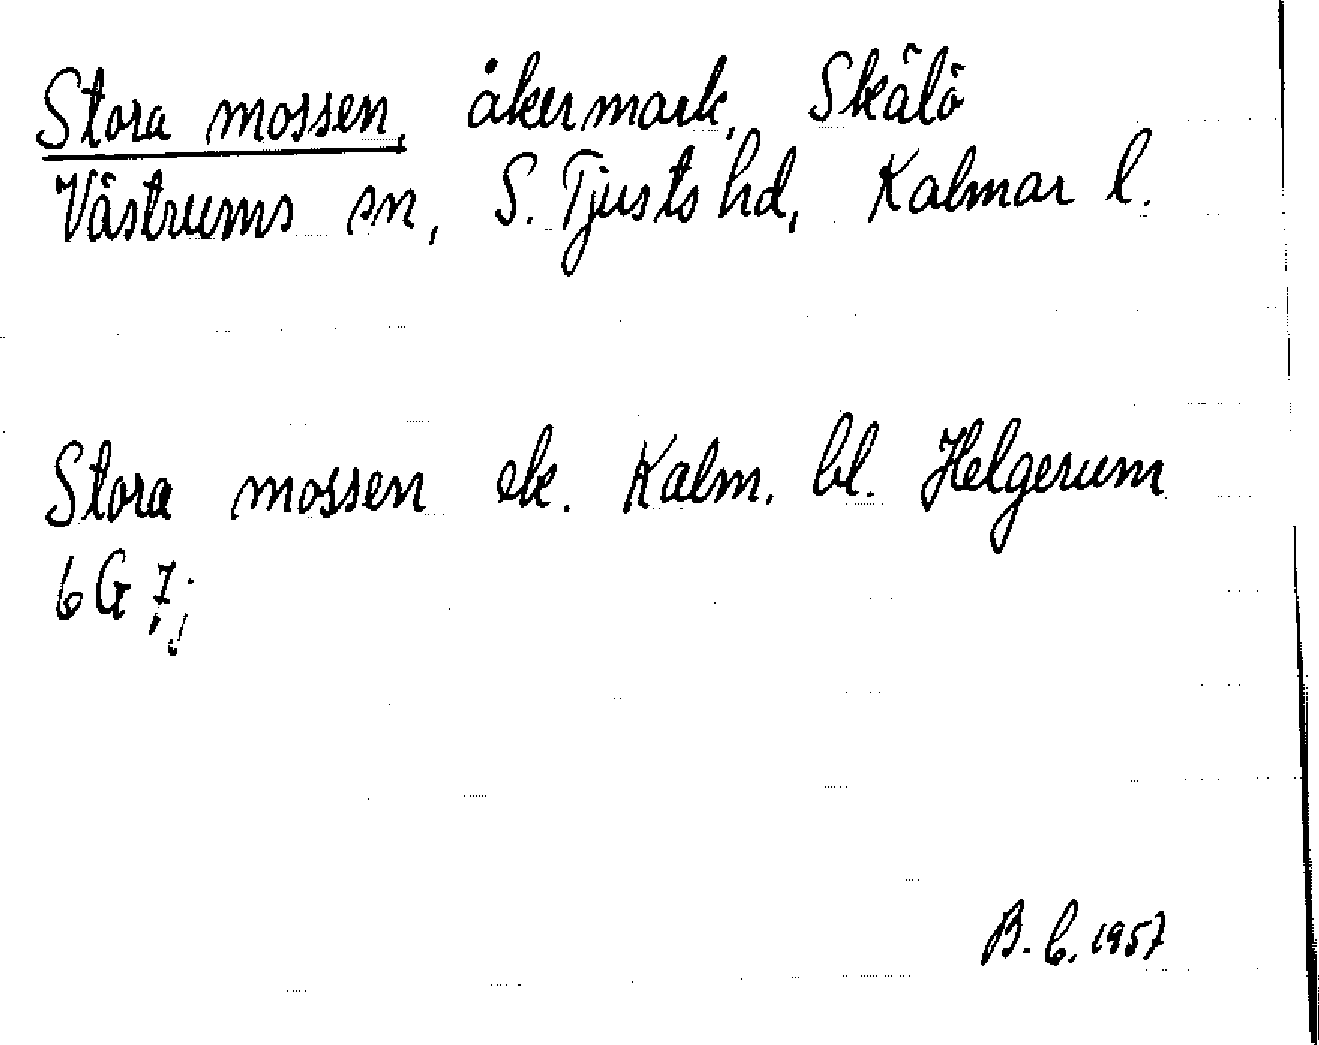 Stora mossen, åkermark, Skälö
Västrums sn, S. Tjusts hd, Kalmar l.
Stora mossen ek. Kalm. bl. Helgerum
6 G 7 j
B. C. 1957